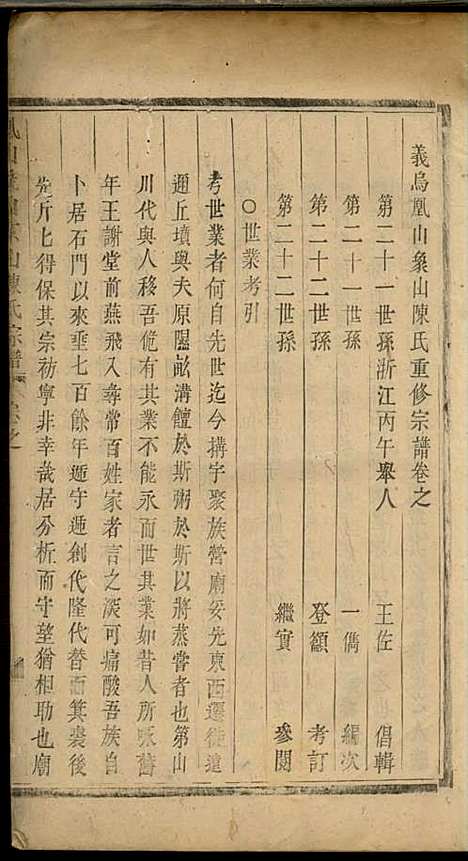 義烏凰山象山陳氏重修宗譜卷之
第二十一世孫浙江丙午舉人 王佐 倡輯
第二十一世孫 一儁 編次
第二十二世孫 登籲 考訂
第二十二世孫 繼實 參閱
○世業考引
考世業者何自先世迄今搆宇聚族營廟妥先東西遷徙遠
邇丘墳與夫原隰畝溝饘於斯粥於斯以將蒸嘗者也第山
川代與人移吾儕有其業不能永而世其業如昔人所咏舊
年王謝堂前燕飛入尋常百姓家者言之淡可痛酸吾族自
卜居石門以來垂七百餘年遞守遞創代隆代替而箕裘後
先斤匕得保其宗祊寧非幸哉居分析而守望猶相助也廟
山象山陳氏宗譜